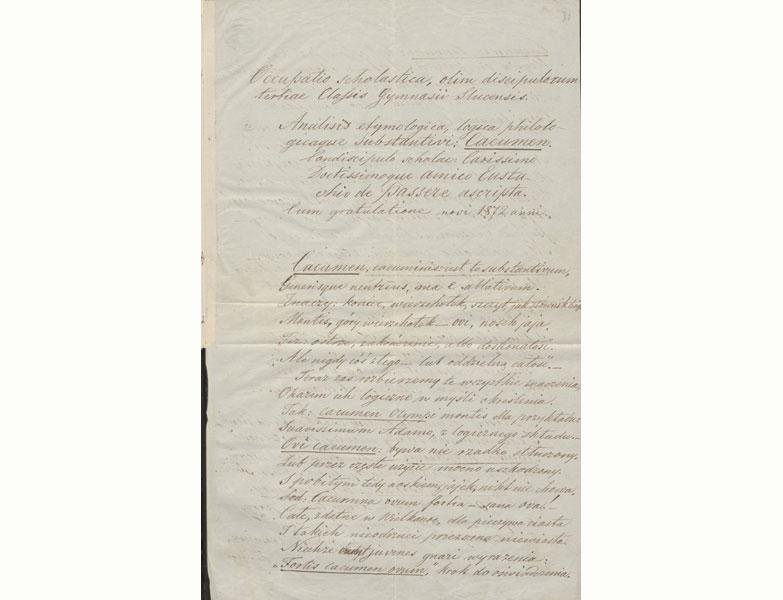 31
Occupatio scholastica, olim discipulorum
tertiae Classis Gymnasii Slucensis.
Analisis etymologica, logica philolo-
gicaque Substantivi: Cacumen.
Condiscipulo scholae: Carissimo
Doctissimoque amico Eusta
chio de Passere ascripta.
Cum gratulatione novi 1872 anni.
Cacumen, cacuminis: est to substantivum,
Generisque neutrius, ma e ablativum.
Znaczy: koniec, wierzchołek, szczyt, jak
Montis, góry wierzchołek — ovi, nosek jaja.
Też: ostrze, zakończenie, albo doskonałość.
Ale nigdy coś złego — lub oddzielną całość. —
Teraz zaś rozbierzemy te wszystkie znaczenia,
Okażem ich logiczne w myśli określenia.
Tak: cacumen Olympi montis dla przykładu:
Suavissimum Adamo, z logicznego składu. —
Ovi cacumen: bywa nie rzadko stłuczony.
Lub przez częste użycie mocno uszkodzony.
I pobitym tedy noskiem, jajek, nikt nie chowa.
Sed: Cacumina ovum fortia — sana ova. —
Całe, zdatne w Wielkanoc, dla pieczywa ciasta
I takich nieodrzuci przezorna niewiasta.
Niechże juvenes gnari wyrażenia:
„Fortis cacumen ovum," krok do oświadczenia.